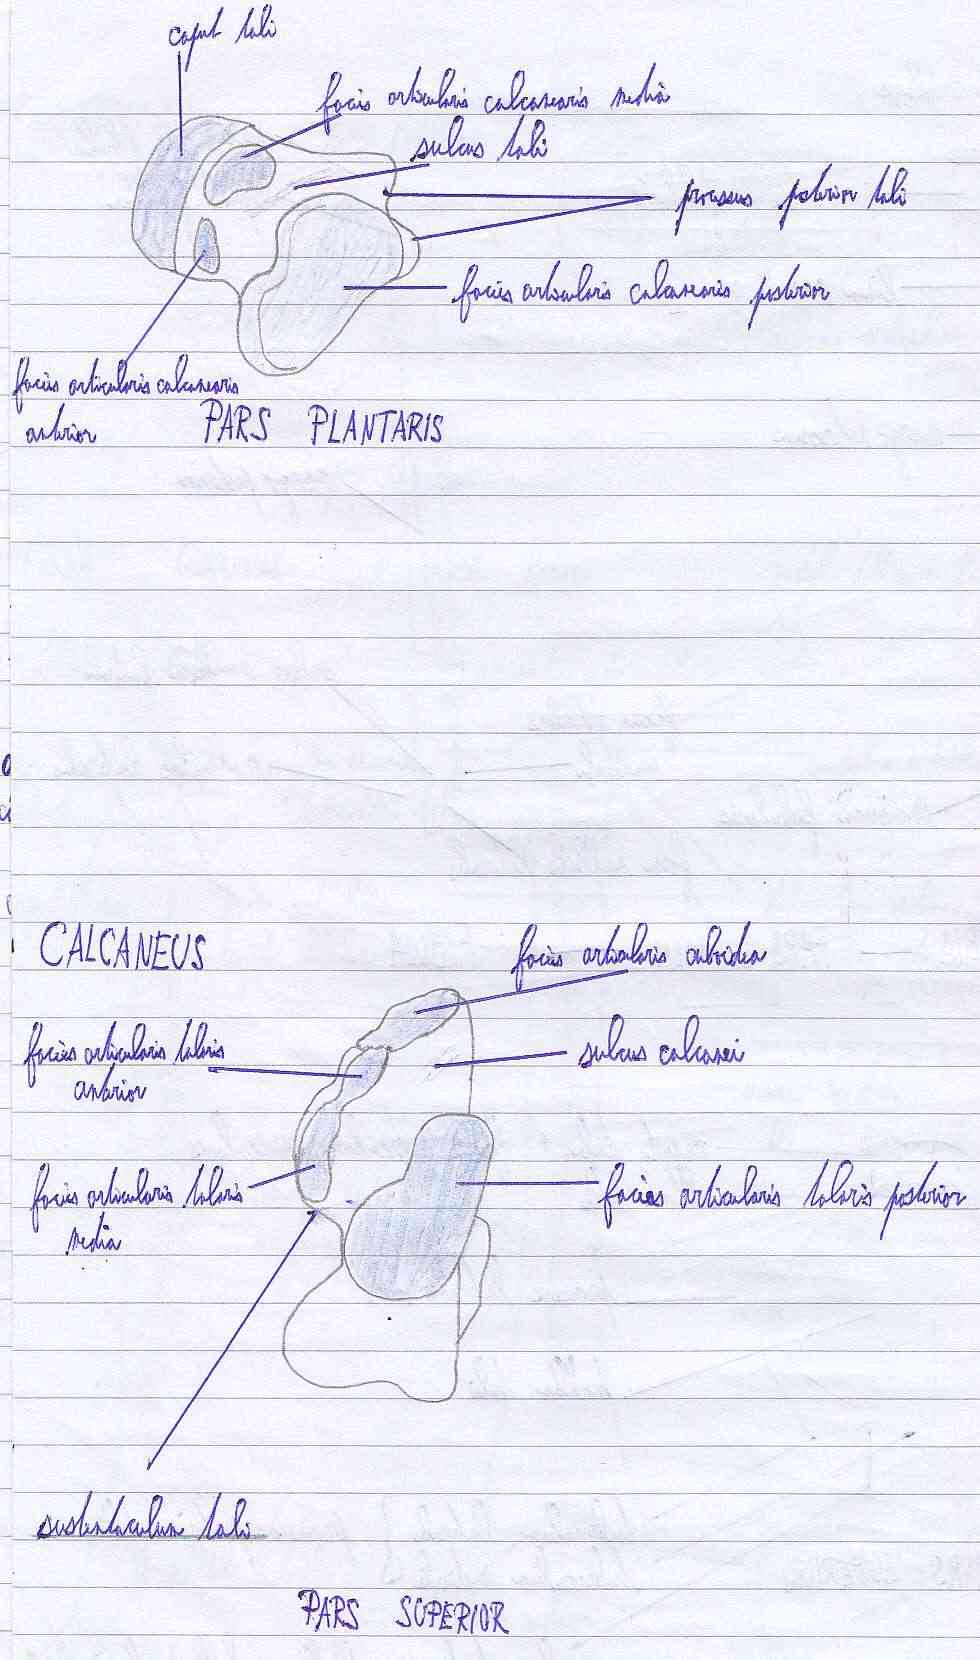 caput tali
facies articularis calcanearis media
sulcus tali
processus posterior tali
facies articularis calcanearis posterior
facies articularis calcanearis
anterior
PARS PLANTARIS
CALCANEUS
facies articularis cuboidea
facies articularis talaris
anterior
sulcus calcanei
facies articularis talaris
media
facies articularis talaris posterior
sustentaculum tali
PARS SUPERIOR